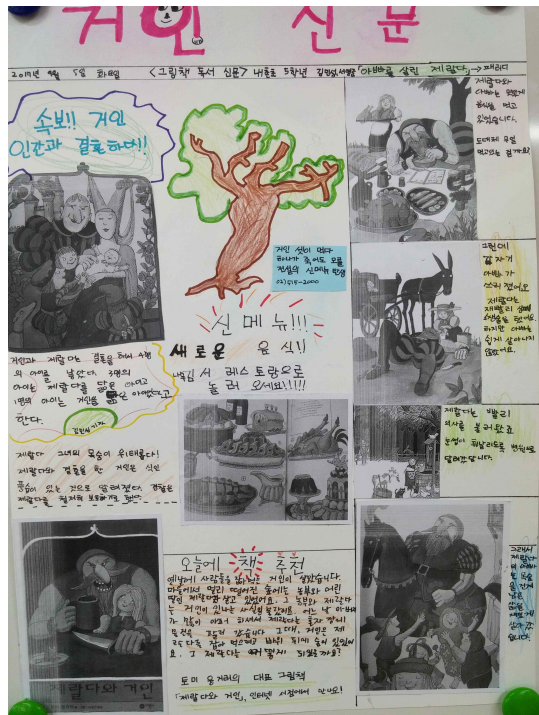 거인 신문
2017년 9월 5일 화요일 <그림책 독서 신문> 내흥초 5학년
「아빠를 살린 제랄다」→ 패러디
속보!! 거인
인간과 결혼하다!
거인과 제랄다는 결혼을 해서 4명
의 아이를 낳았다. 3명의
아이는 제랄다를 닮은 아이고
1명의 아이는 거인을 닮은 아이였다고
한다.
제랄다 그녀의 목숨이 위태롭다!
제랄다와 결혼을 한 거인은 식인
풍습이 있는 것으로 알려졌다. 경찰은
제랄다를 철저히 보호하기로 했다.
제랄다와 거인
거인 셋이 먹다
하나가 죽어도 모를
전설의 신메뉴 탄생
02)515-2000
신 메뉴!!!
새로운 음식!!
서 레스토랑으로
놀러 오세요!!!!!
오늘에 책 추천
옛날에 사람들을 잡아먹는 거인이 살았습니다
마을에서 멀리 떨어진 숲에는 농부와 어린
딸인 제랄다가 살고 있었어요. 그 농부와 제랄다
는 거인이 있다는 사실을 몰랐지요. 어느 날 아빠
가 많이 아파 하셔서 제랄다는 혼자 장에
물건을 팔러 갔습니다 그때, 거인은 제
랄다를 잡아 먹으려고 바위 뒤에 숨어 있었어
요. 그 제랄다는 어떻게 되었을까요?
토미 웅거러의 대표 그림책
「제랄다와 거인」, 인터넷 서점에서 만나요!
제랄다와
아빠는 맛있게
음식을 먹고
있었습니다.
도대체 무얼
먹고있는 걸까요?
그런데
갑자기
아빠가
쓰러졌어요
제랄다는
재빨리
했어요.
하지만 아빠는
쉽게 살아나지
않았어요.
제랄다는 빨리
의사를 불러왔죠
눈썹이 휘날리도록 병원으로
달려갔답니다.
그래서
제랄다
의 아빠
는 목숨
을 건져
남은
삶을
재밌게
살아
습니다.